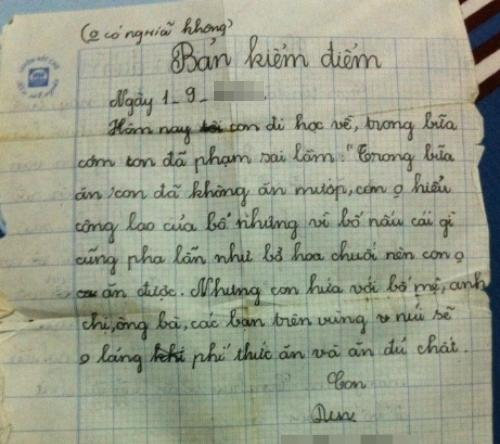 (o có nghĩa không)
Bản kiểm điểm
Ngày 1_9_
Hôm nay tới con đi học về, trong bữa
cơm con đã phạm sai lầm: "Trong bữa
ăn, con đã không ăn mướp, con o hiểu
công lao của bố nhưng vì bố nấu cái gì
cũng pha lẫn như bỏ hoa chuối nên con o
ăn được. Nhưng con hứa với bố mẹ, anh
chị, ông bà, các bạn trên vùng núi sẽ
o lãng phí thức ăn và ăn đủ chất.
Con